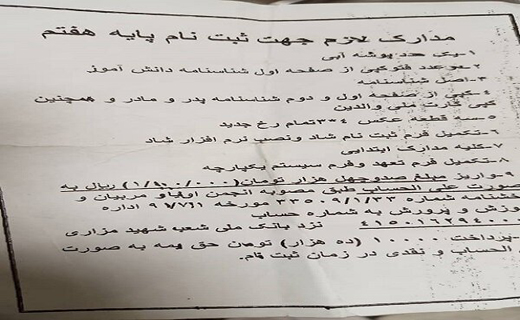 مدارک لازم جهت ثبت نام پایه هفتم
۱-یک عدد پوشه آبی
۲-دو عدد فتوکپی از صفحه اول شناسنامه دانش آموز
۳-اصل شناسنامه
۴-کپی از صفحه اول و دوم شناسنامه پدر و مادر و همچنین
کپی کارت ملی والدین
۵-سه قطعه عکس ۴*۳ تمام رخ جدید
۶-تکمیل فرم ثبت نام شاد ونصب نرم افزار شاد
۷-کلیه مدارک ابتدایی
۸-تکمیل فرم تعهد وفرم سیستم یکپارچه
۹-واریز مبلغ صدوچهل هزار تومان ریال به
صورت علی الحساب طبق مصوبه انجمن اولیاو مربیان و
بخشنامه شماره مورخه اداره
آموزش و پرورش به شماره حساب
نزد بانک ملی شعبه شهید مزاری
پرداخت ۱۰۰۰۰ (ده هزار) تومان حق بیمه به صورت
علی الحساب و نقدی در زمان ثبت نام.